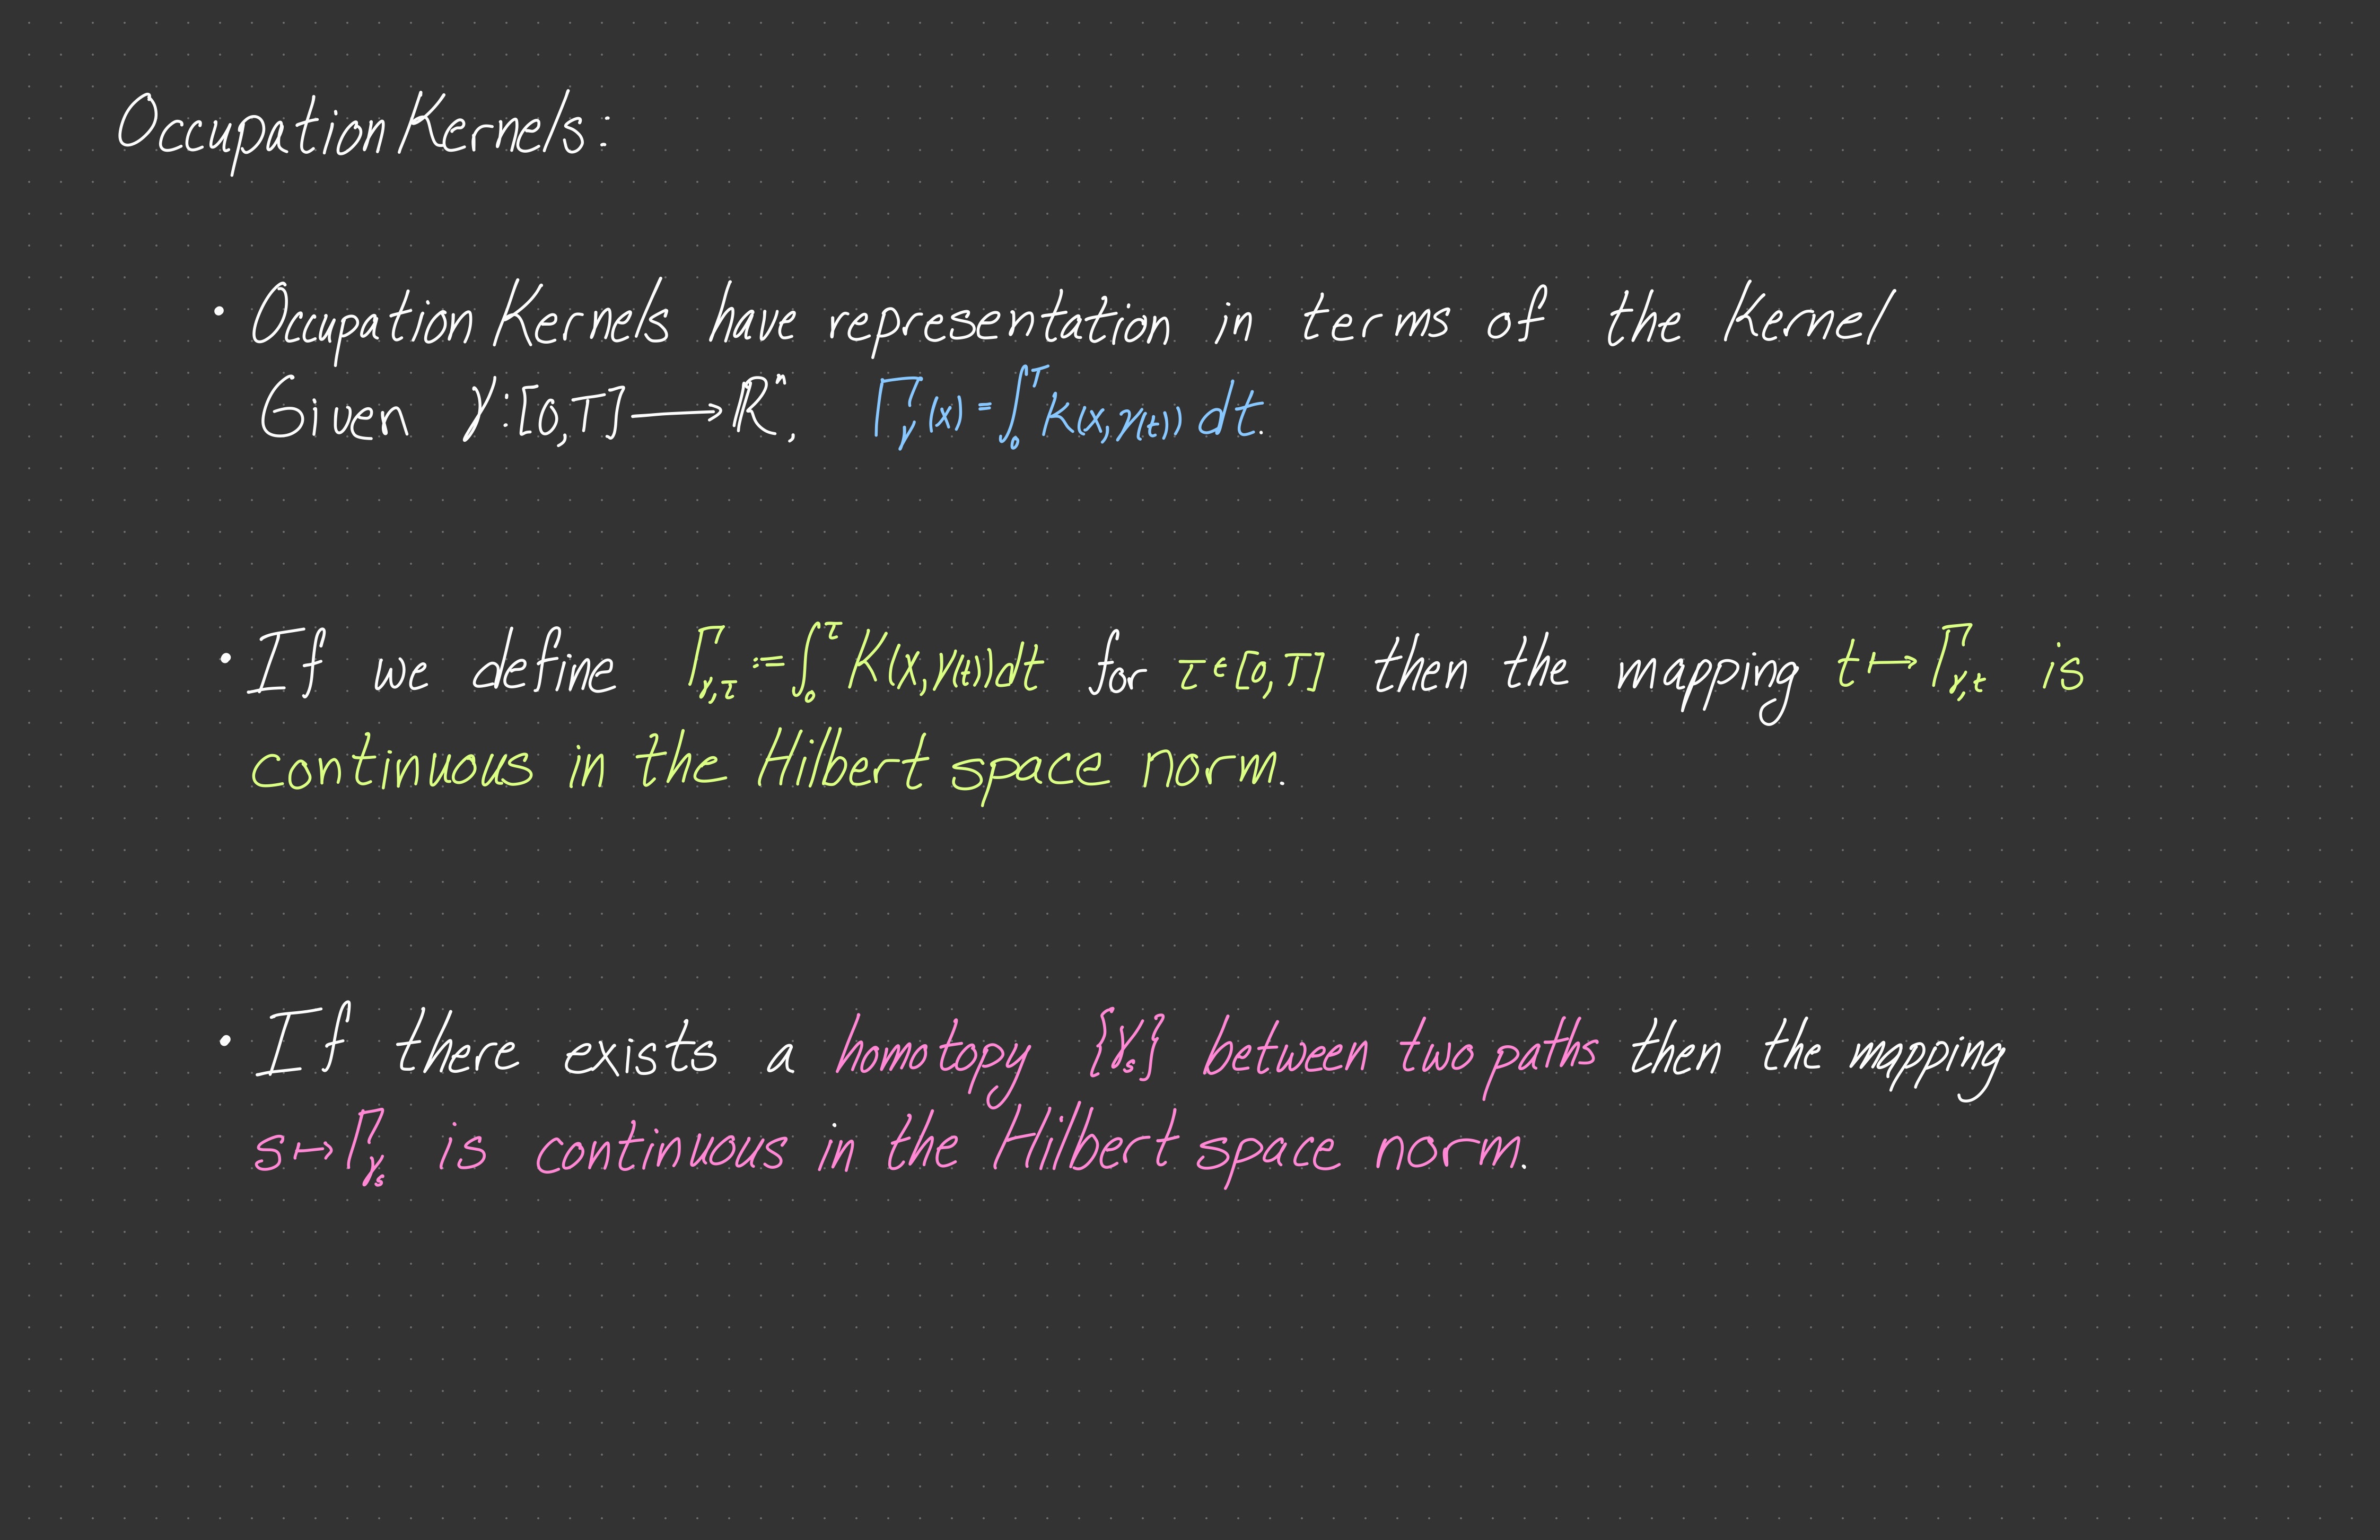 Occupation Kernels:
• Occupation Kernels have representation in terms of the Kernel
Given γ:[0,T]⟶ℝⁿ, Γ_γ(x) = ∫₀ᵀ K(x,γ(t)) dt.
• If we define Γ_{γ,τ} := ∫₀^τ K(x,γ(t))dt for τ ∈ [0,T] then the mapping t ↦ Γ_{γ,t} is
continuous in the Hilbert space norm.
• If there exists a homotopy {γₛ} between two paths then the mapping
s ↦ Γ_{γₛ} is continuous in the Hilbert space norm.